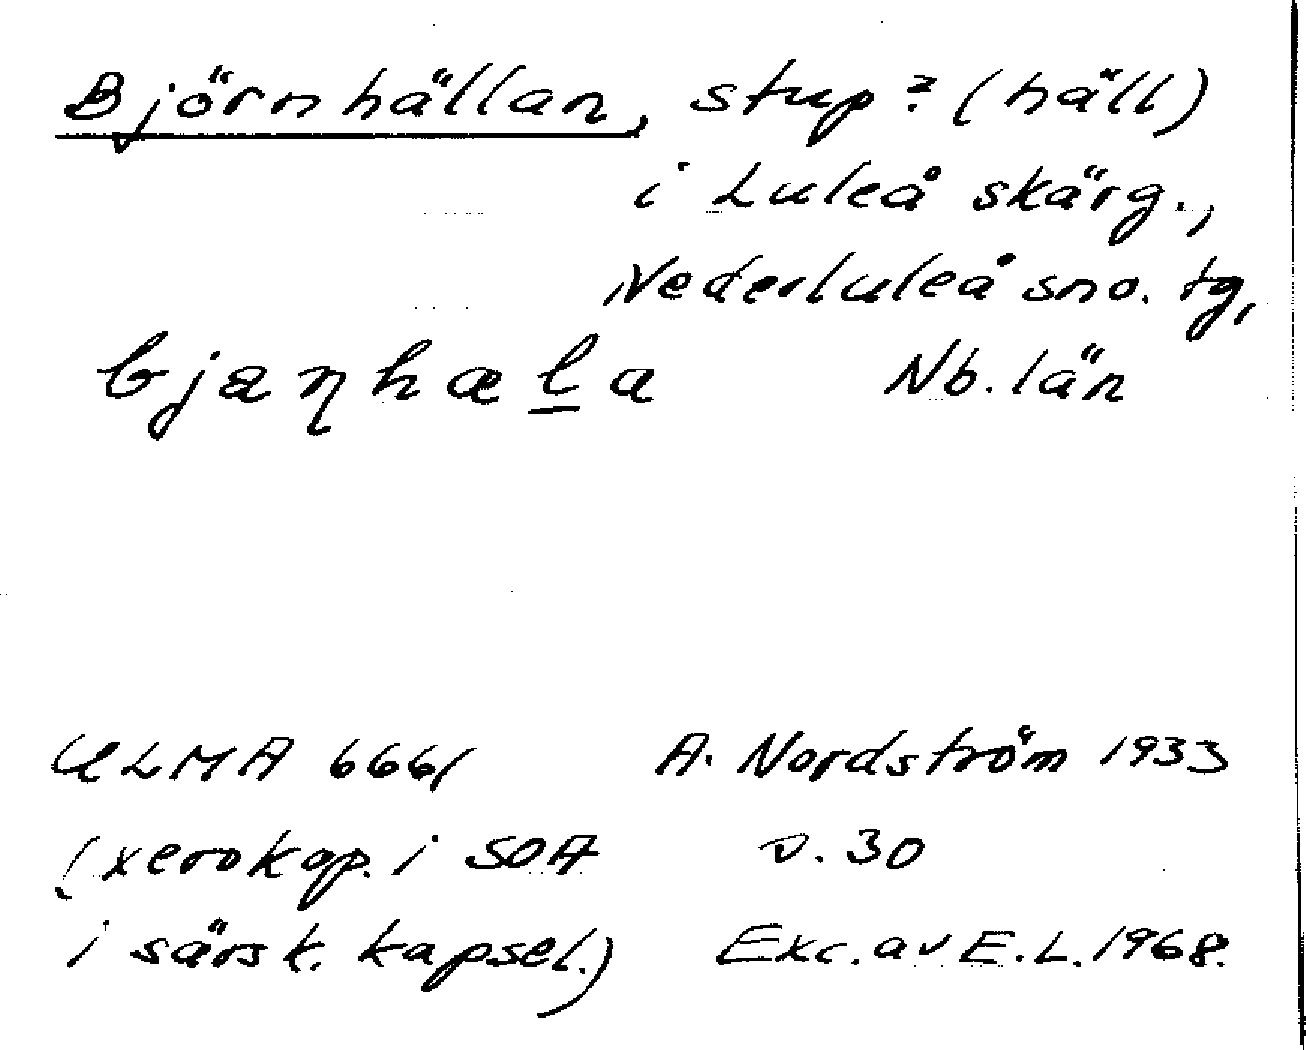 Björnhällan, stup? (häll)
i Luleå skärg.,
Nederluleå sno. tg,
bjæɳhæl̲a Nb. län
ULMA 6661 A. Nordström 1933
(xerokop. i SOA s. 30
i särsk. kapsel.) Exc. av E.L. 1968.